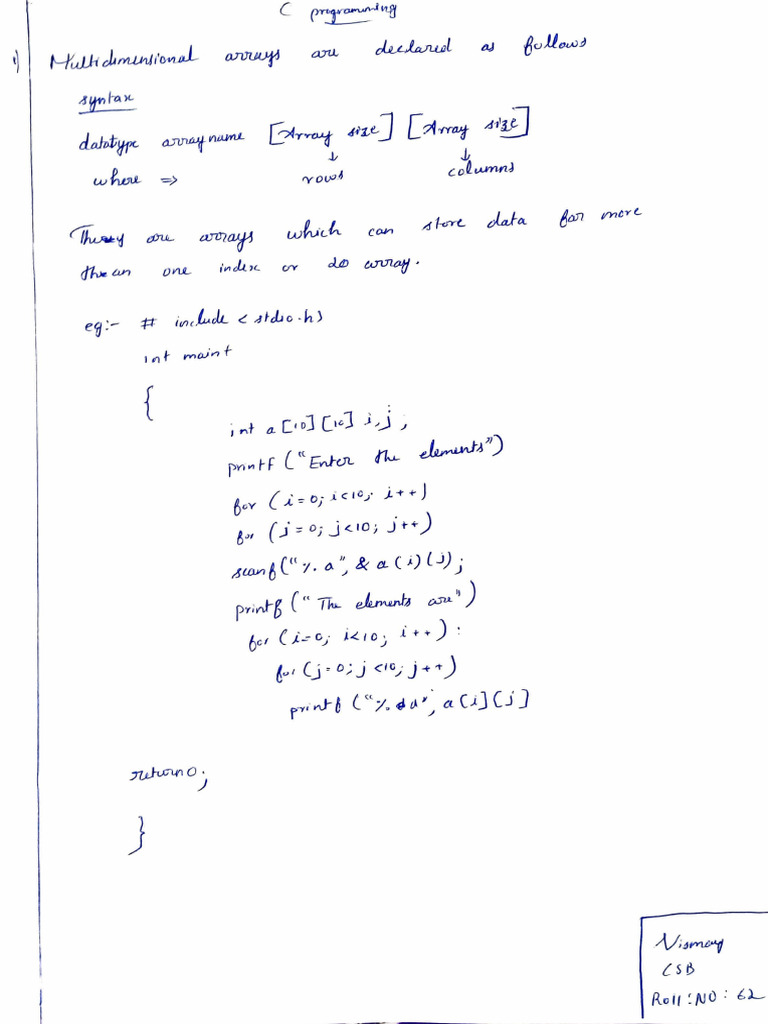 C programming
1) Multidimensional arrays are declared as follows
syntax
datatype arrayname [Array size] [Array size]
where => ↓ rows ↓ columns
They are arrays which can store data for more
than one index or 2D array.
eg:- # include < stdio.h>
int main
{
int a [10] [10] i,j ;
printf ("Enter the elements")
for (i=0; i<10; i++)
for (j=0; j<10; j++)
scanf("%. a", & a(i)(j);
printf ("The elements are")
for (i=0; i<10; i++) :
for (j=0; j<10; j++)
printf ("%. d", a[i][j]
return0;
}
Vismay
CSB
Roll:NO: 62